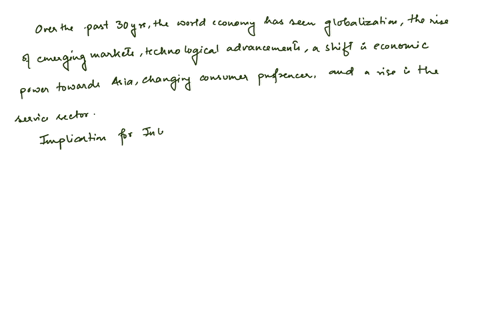 Over the past 30 yrs, the world economy has seen globalization, the rise
of emerging markets, technological advancements, a shift in economic
power towards Asia, changing consumer preferences. and a rise in the
service sector.
Implication for Int